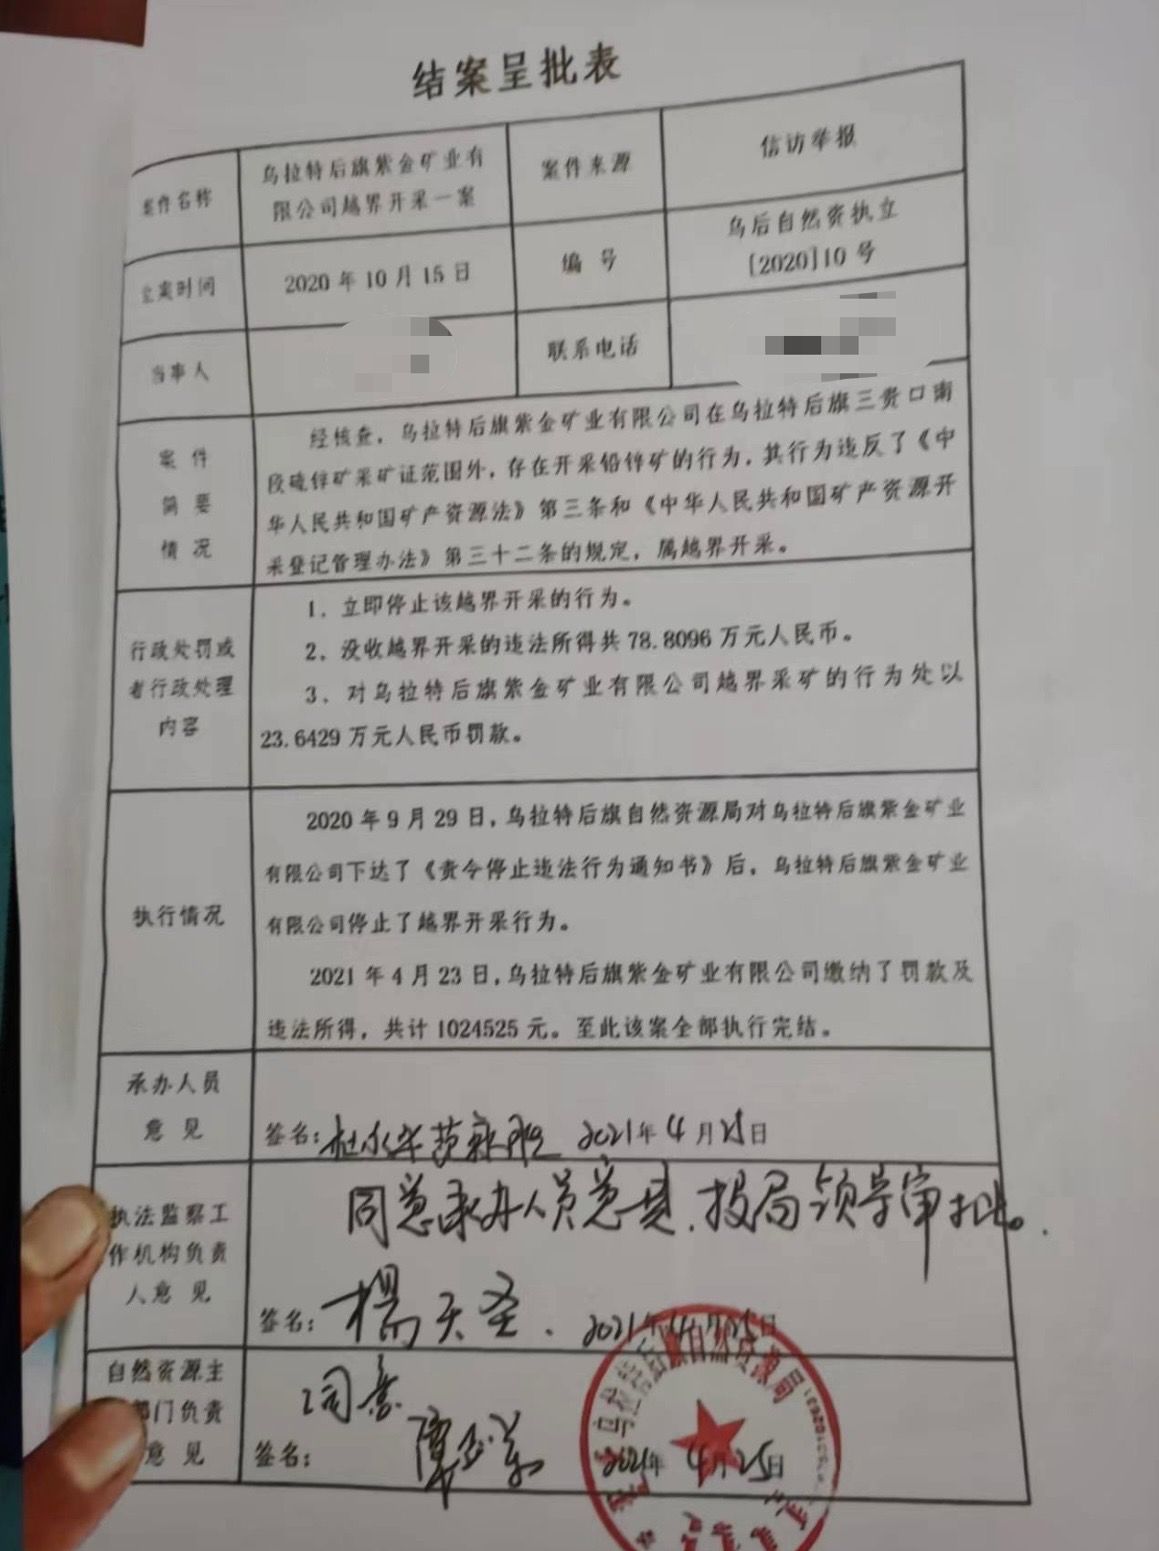 结案呈批表
案件名称
乌拉特后旗紫金矿业有
限公司越界开采一案
案件来源
信访举报
立案时间
2020年10月15日
编 号
乌后自然资执立
[2020]10号
当事人
联系电话
案 件
简 要
情 况
经核查，乌拉特后旗紫金矿业有限公司在乌拉特后旗三贵口南
段硫锌矿采矿证范围外，存在开采铅锌矿的行为，其行为违反了《中
华人民共和国矿产资源法》第三条和《中华人民共和国矿产资源开
采登记管理办法》第三十二条的规定，属越界开采。
行政处罚或
者行政处理
内容
1、立即停止该越界开采的行为。
2、没收越界开采的违法所得共78.8096万元人民币。
3、对乌拉特后旗紫金矿业有限公司越界采矿的行为处以
23.6429万元人民币罚款。
执行情况
2020年9月29日，乌拉特后旗自然资源局对乌拉特后旗紫金矿业
有限公司下达了《责令停止违法行为通知书》后，乌拉特后旗紫金矿业
有限公司停止了越界开采行为。
2021年4月23日，乌拉特后旗紫金矿业有限公司缴纳了罚款及
违法所得，共计1024525元。至此该案全部执行完结。
承办人员
意 见
签名： 2021年4月 日
执法监察工
作机构负责
人意 见
同意承办人员意见，报局领导审批。
签名：杨天圣. 2021年4月25日
自然资源主
部门负责
意 见
同意
签名： 2021年4月25日
乌拉特后旗自然资源局